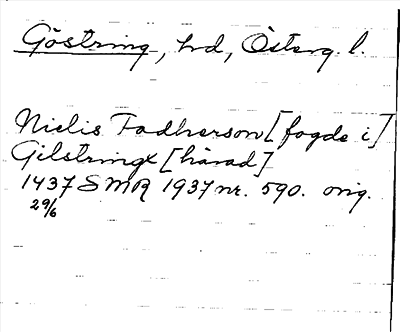 Göstring, hd, Österg. l.
Nielis Fadherson [fogde i]
Gilstringx [härad]
1437 SMR 1937 nr. 590. orig.
29/6